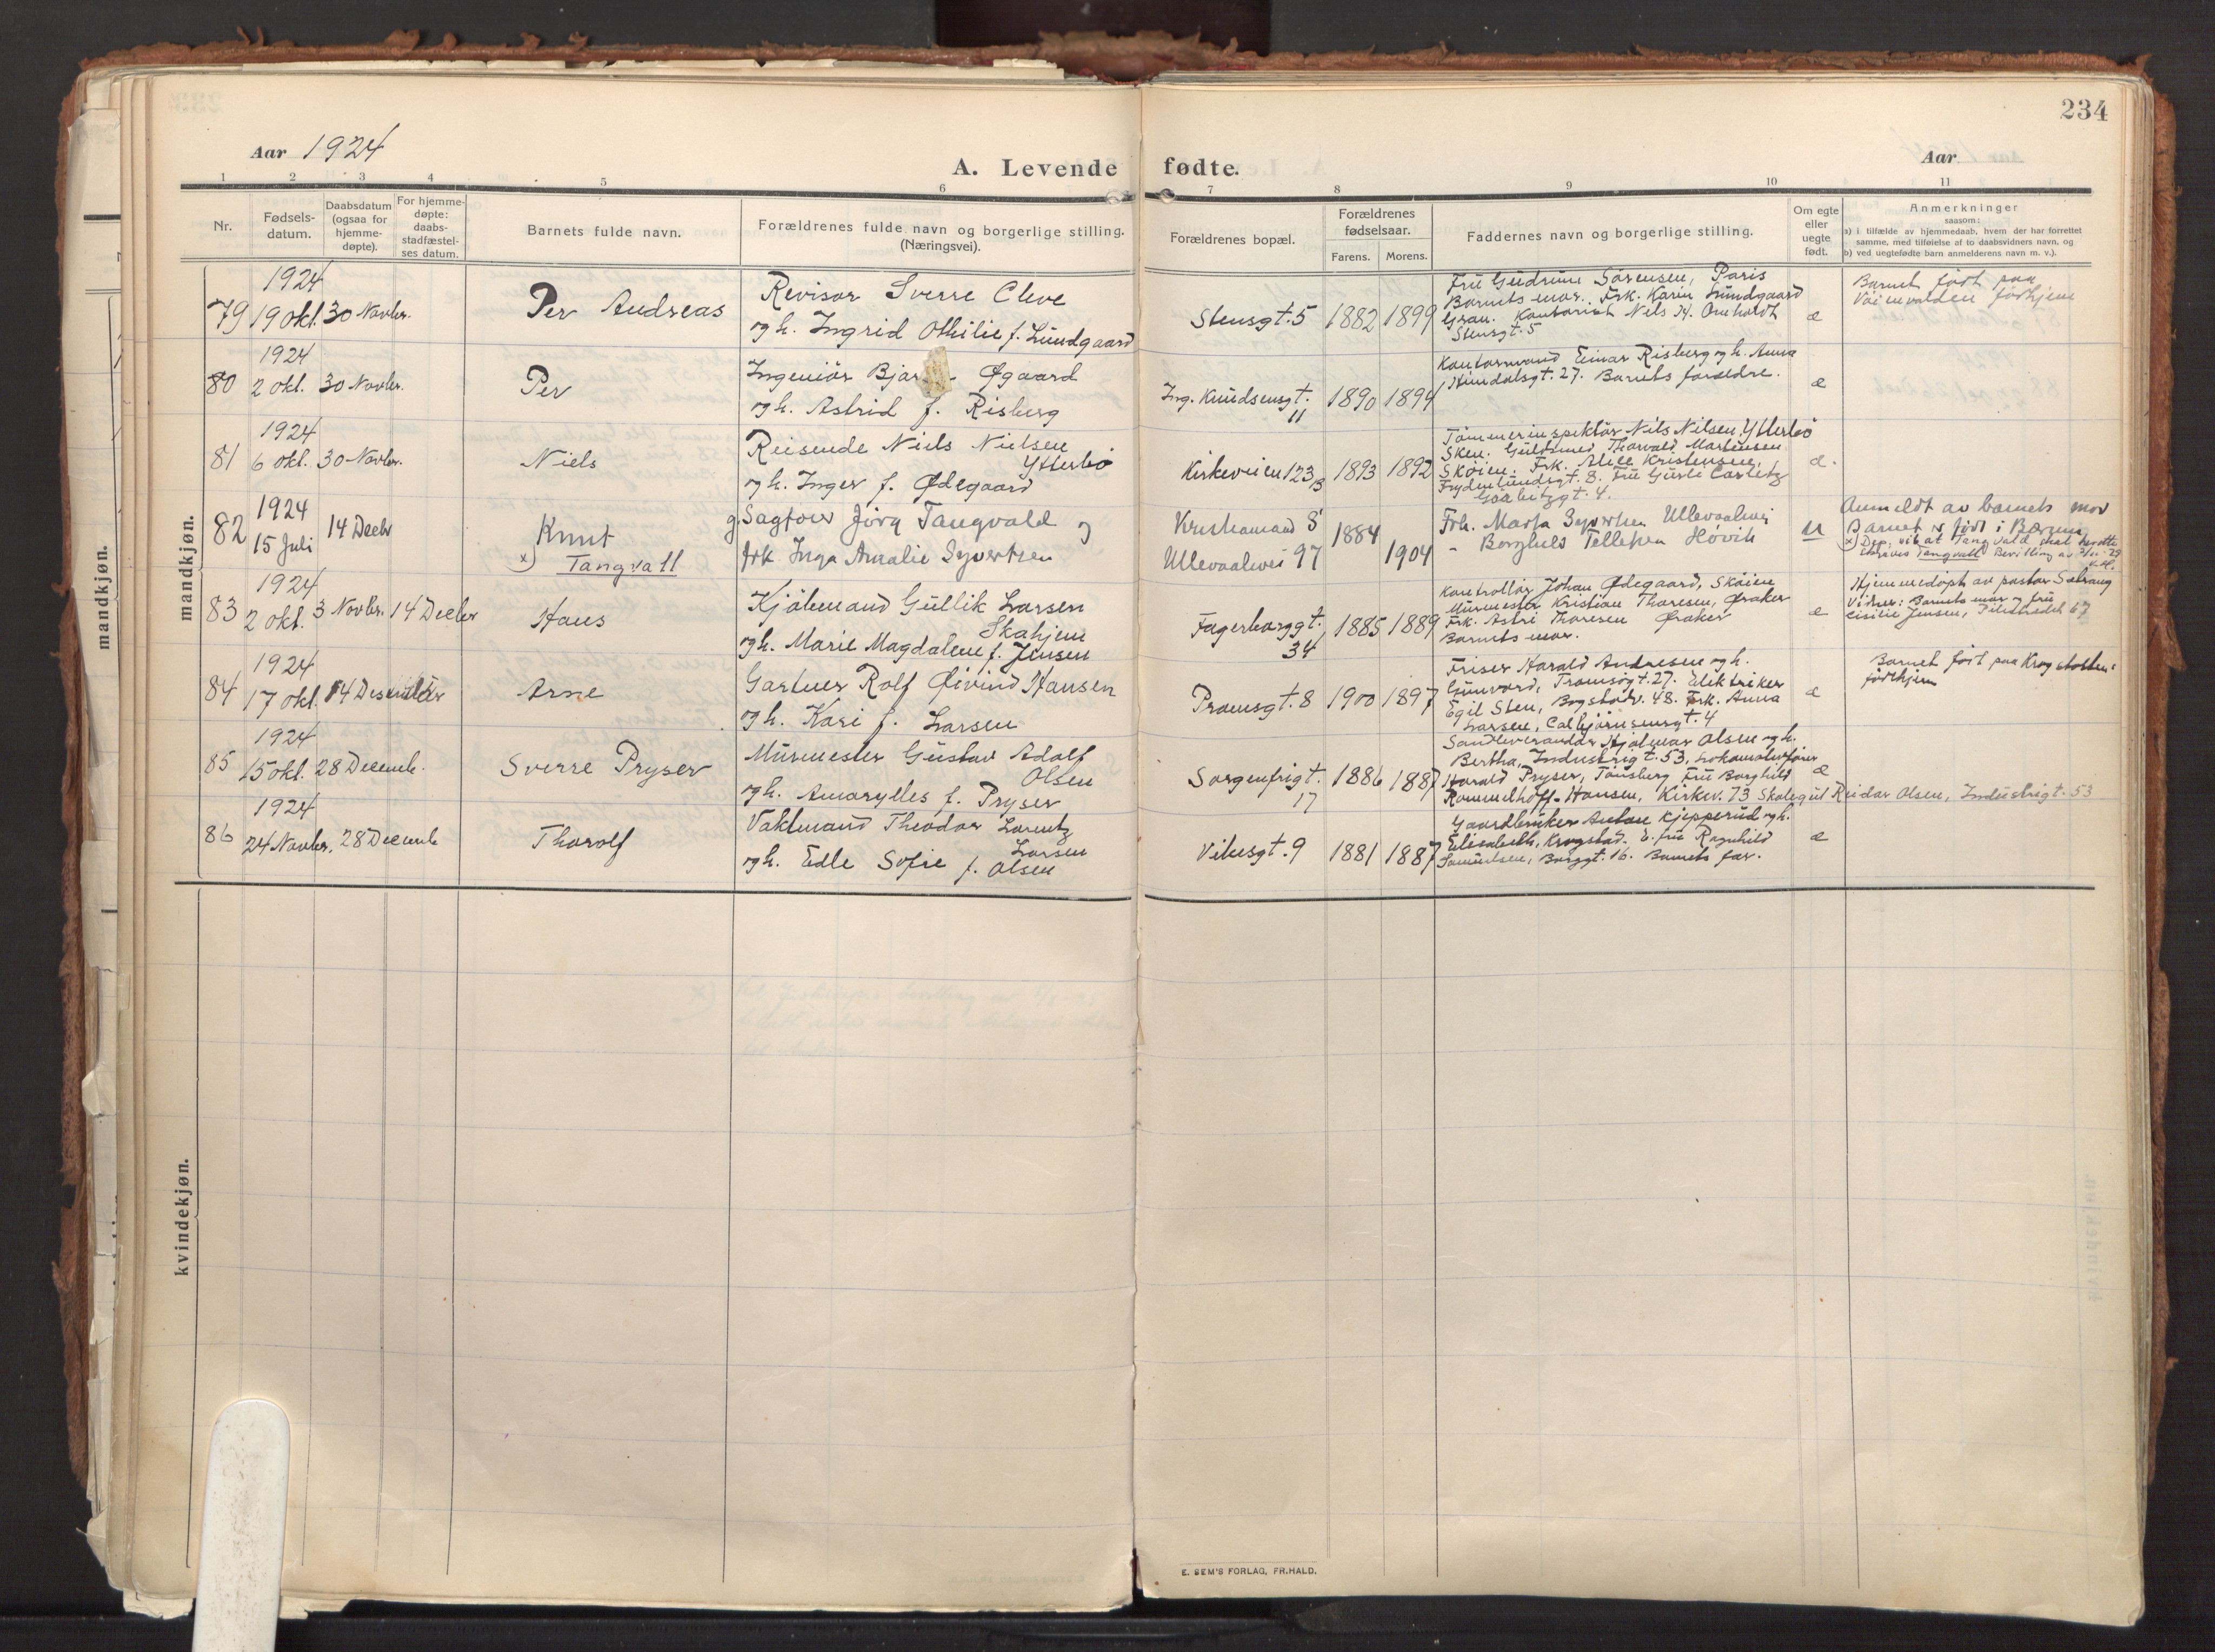 234
Aar 1924
A. Levende fødte.
Aar
1 2 3 4 5 6 7 8 9 10 11
Nr.
Fødsels-
datum.
Daabsdatum
(ogsaa for
hjemme-
døpte).
For hjemme-
døpte:
daabs-
stadfæstel-
ses datum.
Barnets fulde navn.
Forældrenes fulde navn og borgerlige stilling.
(Næringsvei).
Forældrenes bopæl.
Forældrenes
fødselsaar.
Farens. Morens.
Faddernes navn og borgerlige stilling.
Om egte
eller
uegte
født.
Anmerkninger
saasom:
a) i tilfælde av hjemmedaab, hvem der har forrettet
samme, med tilføielse af to daabsvidners navn, og
b) ved uegtefødte barn anmelderens navn m. v.).
mandkjøn.
mandkjøn.
1924
79 19 Okt. 30 Novbr.
Per Andreas
Revisor Sverre Cleve
og h. Ingrid Othilie f. Lundgaard
Stensgt. 5 1882 1899
Fru Gudrun Sörensen, Paris
Barnets mor. Frk. Karin Lundgaard
Gran. Kontorist Nils H. Omholdt
Stensgt. 5
æ
Barnet født paa
Voienvolden födhjem
1924
80 2 Okt. 30 Novbr.
Per
Ingeniör Øgaard
og h. Astrid f. Risberg
Ing. Knudsensgt.
11
1890 1899
Kontormand Einar Risberg og h. Anna
Hundalsgt. 27. Barnets forældre.
æ
1924
81 6 Okt. 30 Novbr.
Niels
Reisende Niels Nielsen
Ytterbö
og h. Inger f. Ødegaard
Kirkeveien 123 B 1893 1892
Tömmerinspektör Nils Nilsen Ytterbö
Sken. Guldsmed Thorvald Martinsen
Sköien. Frk. Alice Kristensen,
Frydenlundsgt. 8. Fru
4.
æ.
1924
82 15 Juli 14 Decbr
Knut
x) Tangvall
g. Sagfører Jörg Tangvald og
frk Inga Amalie Syvertsen
Kristiansand S 1884
Ullevaalsvei 97 1904
Frk. Marta Syvertsen Ullevaalsvei
" Borghild Tellefsen Høvik
u
Anmeldt av barnets mor
Barnet er født i Bærum
1924
83 2 Okt. 3 Novbr. 14 Decbr
Hans
Kjölmand Gullik Larsen
Skahjem
og h. Marie Magdalene f. Jensen
Fagerborggt.
34
1885 1889
Kontrollör Johan Ødegaard, Sköien
Murmester Kristian Thoresen, Øraker
Frk. Astri Thoresen Øraker
Barnets mor.
æ
Hjemmedöpt av pastor
Vidner: Barnets mor og fru
Cisilie Jensen, Pilestrædet 67
1924
84 17 Okt. 14 Desember
Arne
Gartner Rolf Øivind Hansen
og h. Kari f. Larsen
Promsgt. 8 1900 1897
Frisör Harald Andresen og h.
Gunvord, Tromsögt. 27. Elektriker
Egil Sten, Bogstadv. 48. Frk. Anna
Larsen, Calbjörnsensgt. 4
æ
Barnet födt paa Krogstötten:
födehjem
1924
85 15 Okt. 28 Decemb.
Sverre Pryser
Murmester Gustav Adolf
Olsen
og h. Amarylles f. Pryser
Sorgenfrigt.
17
1886 1887
Sandleverandör Hjalmar Olsen og h.
Bertha, Industrigt. 53, Lokomotivfører
Harald Pryser, Tönsberg Fru Borghild
Rommelhoff-Hansen, Kirkev. 73 Skolegut Reidar Olsen, Industrigt. 53
æ
1924
86 24 Novbr. 28 Decemb
Thorolf
Vaktmand Theodor Lorentz
Larsen
og h. Edle Sofie f. Olsen
Vibesgt. 9 1881 1887
Gaardbruker Anton Kjepperud og h.
Elisabeth, Krogstad. E. fru Ragnhild
Samuelsen, Borggt. 16. Barnets far.
æ
kvindekjøn.
E. SEM'S FORLAG, FR.HALD.